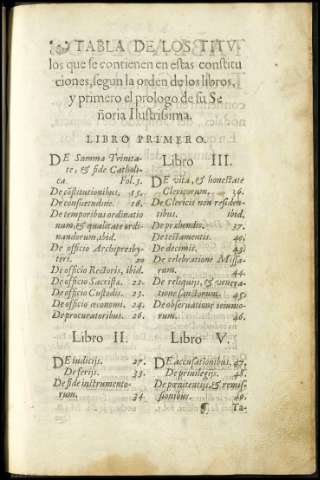 TABLA DE LOS TITV
los que se contienen en estas constitu
ciones, segun la orden de los libros,
y primero el prologo de su Se
ñoria Ilustrissima.
LIBRO PRIMERO.
DE Summa Trinita-
te, & fide Catholi-
ca. Fol. 3.
De cõstitutionibus. 15.
De consuetudine. 18.
De temporibus ordinatio
num, & qualitate ordi
nandorum, ibid.
De officio Archipresby-
teri. 20
De officio Rectoris, ibid.
De officio Sacristæ. 22.
De officio Custodis. 23.
De officio œconomi. 24.
De procuratoribus. 26.
Libro II.
DE iudicijs. 27.
De ferijs. 33.
De fide instrumento-
rum. 34.
Libro III.
DE vita, & honestate
Clericorum. 36.
De Clericis non residen-
tibus. ibid.
De præbendis. 37.
De testamentis. 40.
De decimis. 43.
De celebratione Missa-
rum. 44.
De reliquijs, & venera-
tione sanctorum. 45.
De observatione ieiunio-
rum. 46.
Libro V.
DE accusationibus. 47.
De privilegijs. 48.
De pœnitentijs, & remis-
sionibus. 49.
¶ Ta-